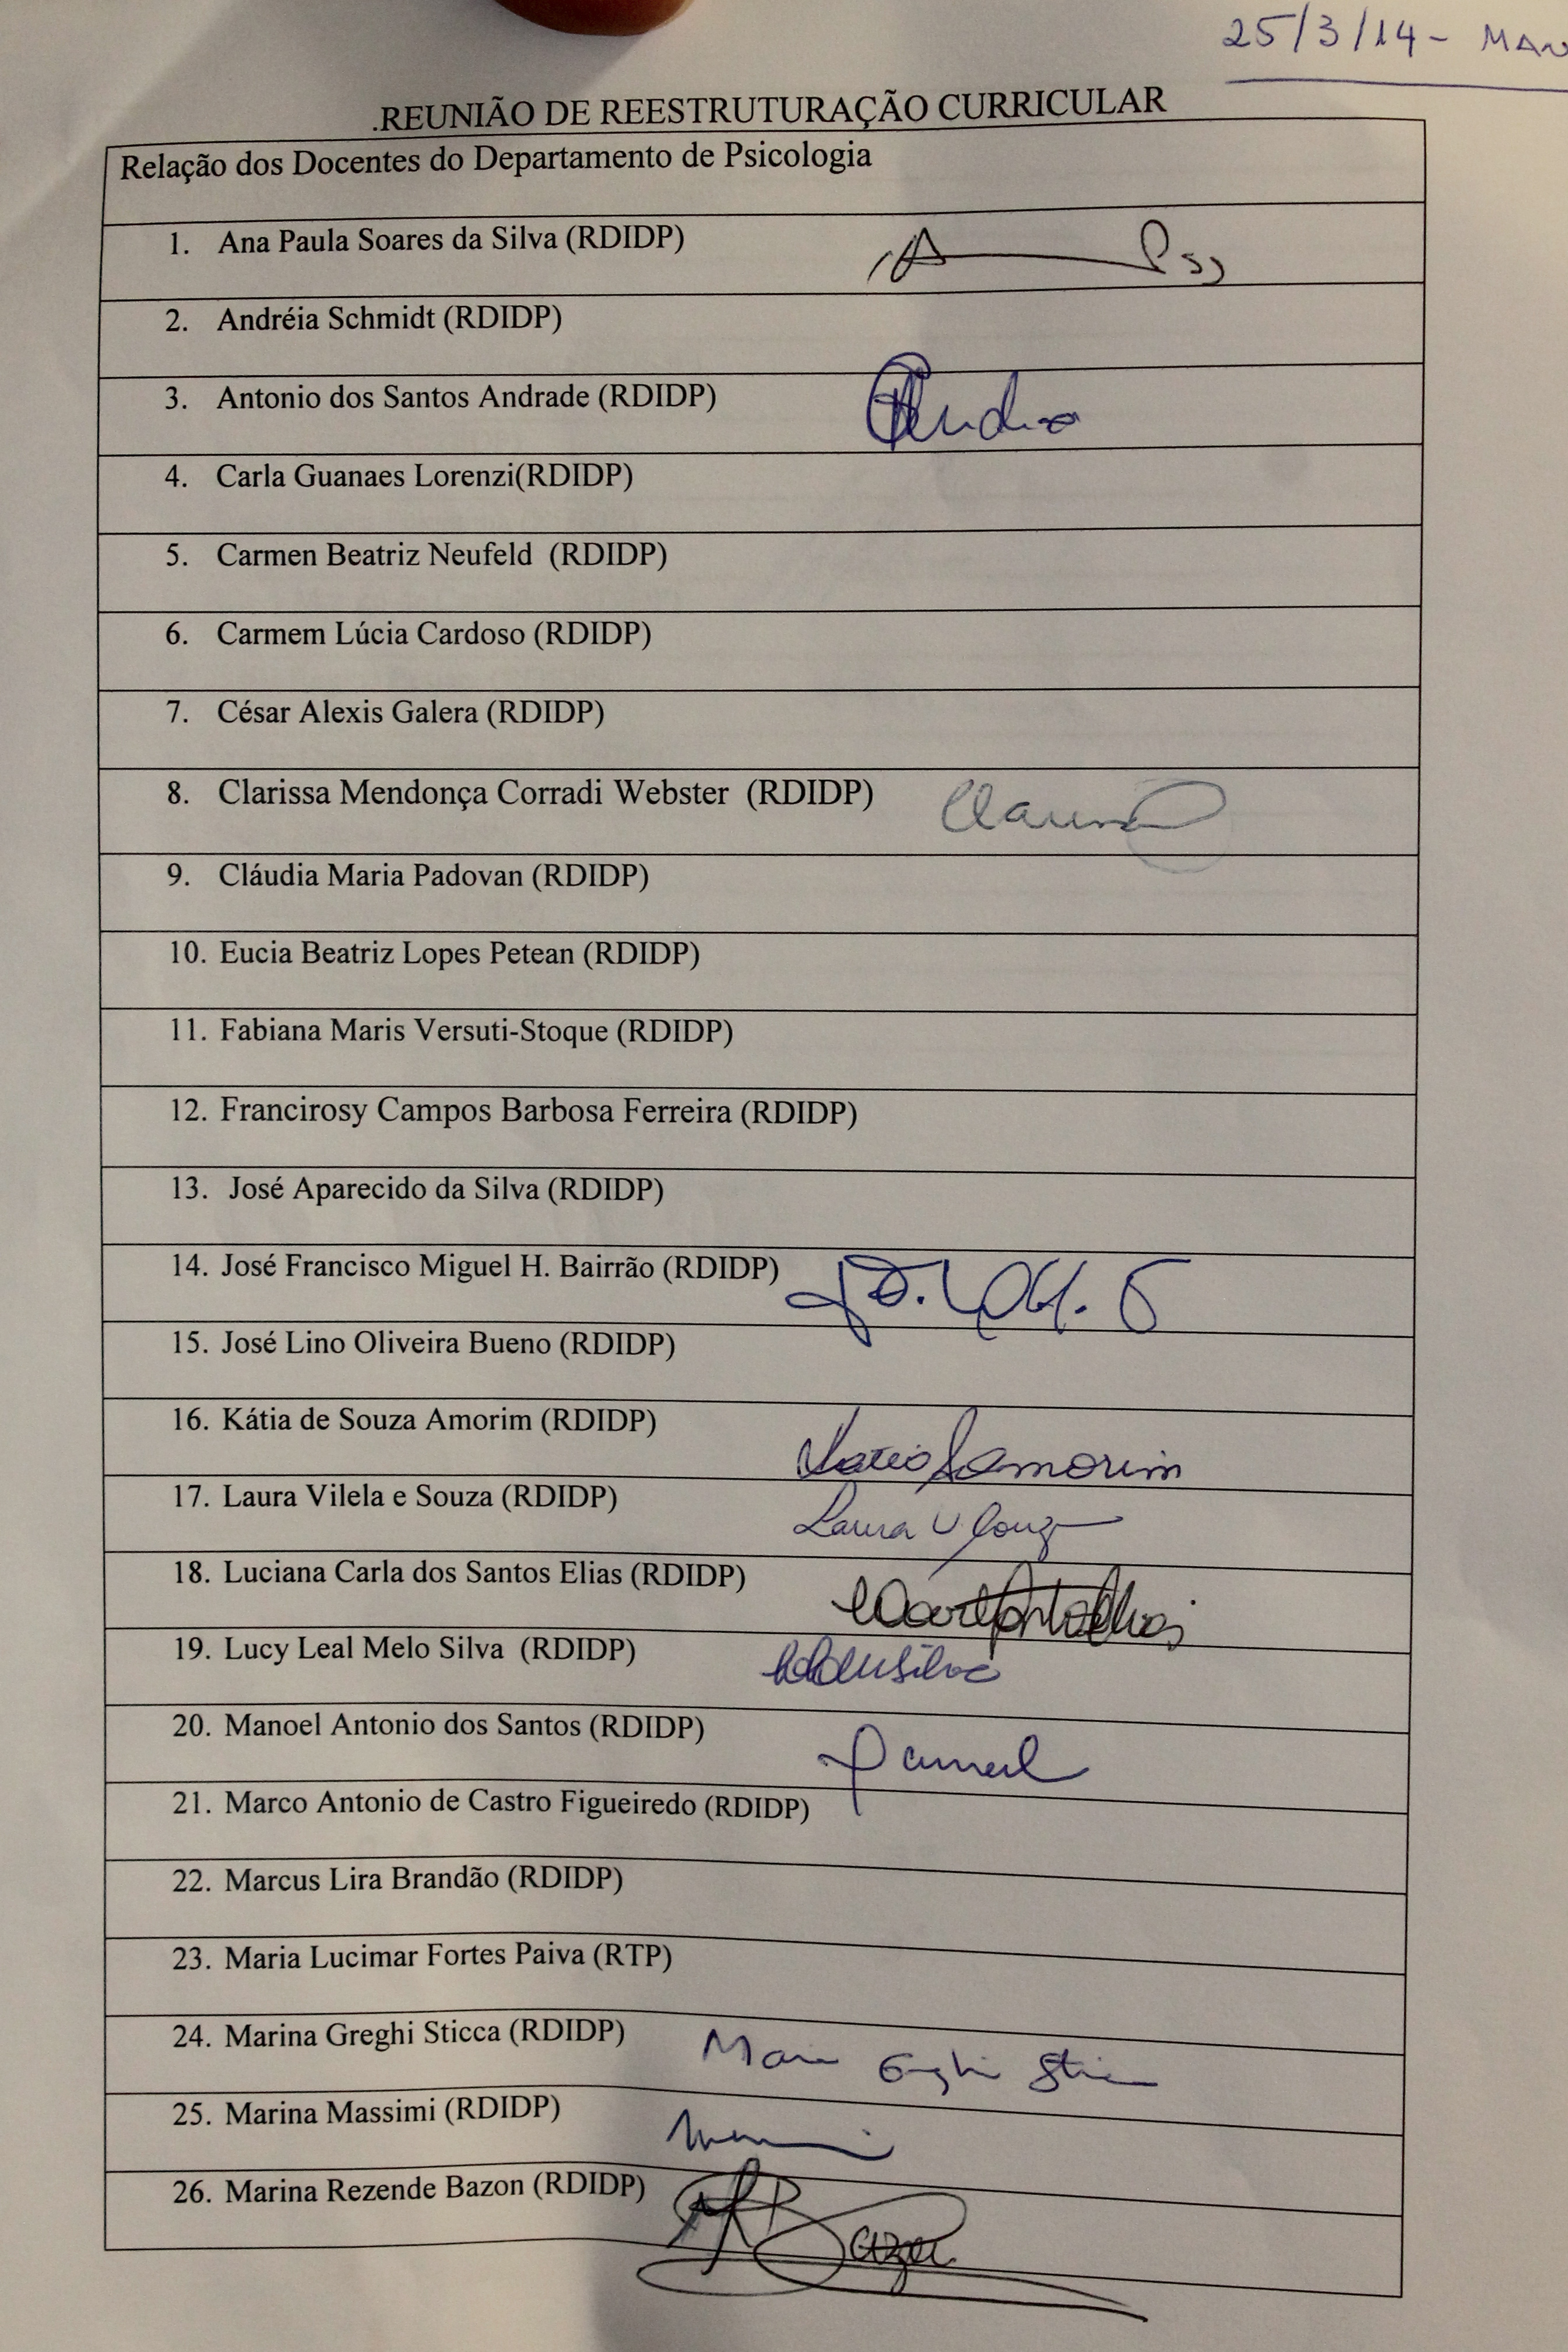 25/3/14 -
.REUNIÃO DE REESTRUTURAÇÃO CURRICULAR
Relação dos Docentes do Departamento de Psicologia
1. Ana Paula Soares da Silva (RDIDP)
2. Andréia Schmidt (RDIDP)
3. Antonio dos Santos Andrade (RDIDP)
4. Carla Guanaes Lorenzi(RDIDP)
5. Carmen Beatriz Neufeld (RDIDP)
6. Carmem Lúcia Cardoso (RDIDP)
7. César Alexis Galera (RDIDP)
8. Clarissa Mendonça Corradi Webster (RDIDP)
9. Cláudia Maria Padovan (RDIDP)
10. Eucia Beatriz Lopes Petean (RDIDP)
11. Fabiana Maris Versuti-Stoque (RDIDP)
12. Francirosy Campos Barbosa Ferreira (RDIDP)
13. José Aparecido da Silva (RDIDP)
14. José Francisco Miguel H. Bairrão (RDIDP)
15. José Lino Oliveira Bueno (RDIDP)
16. Kátia de Souza Amorim (RDIDP)
17. Laura Vilela e Souza (RDIDP) Laura V Souza
18. Luciana Carla dos Santos Elias (RDIDP)
19. Lucy Leal Melo Silva (RDIDP)
20. Manoel Antonio dos Santos (RDIDP)
21. Marco Antonio de Castro Figueiredo (RDIDP)
22. Marcus Lira Brandão (RDIDP)
23. Maria Lucimar Fortes Paiva (RTP)
24. Marina Greghi Sticca (RDIDP)
25. Marina Massimi (RDIDP)
26. Marina Rezende Bazon (RDIDP)